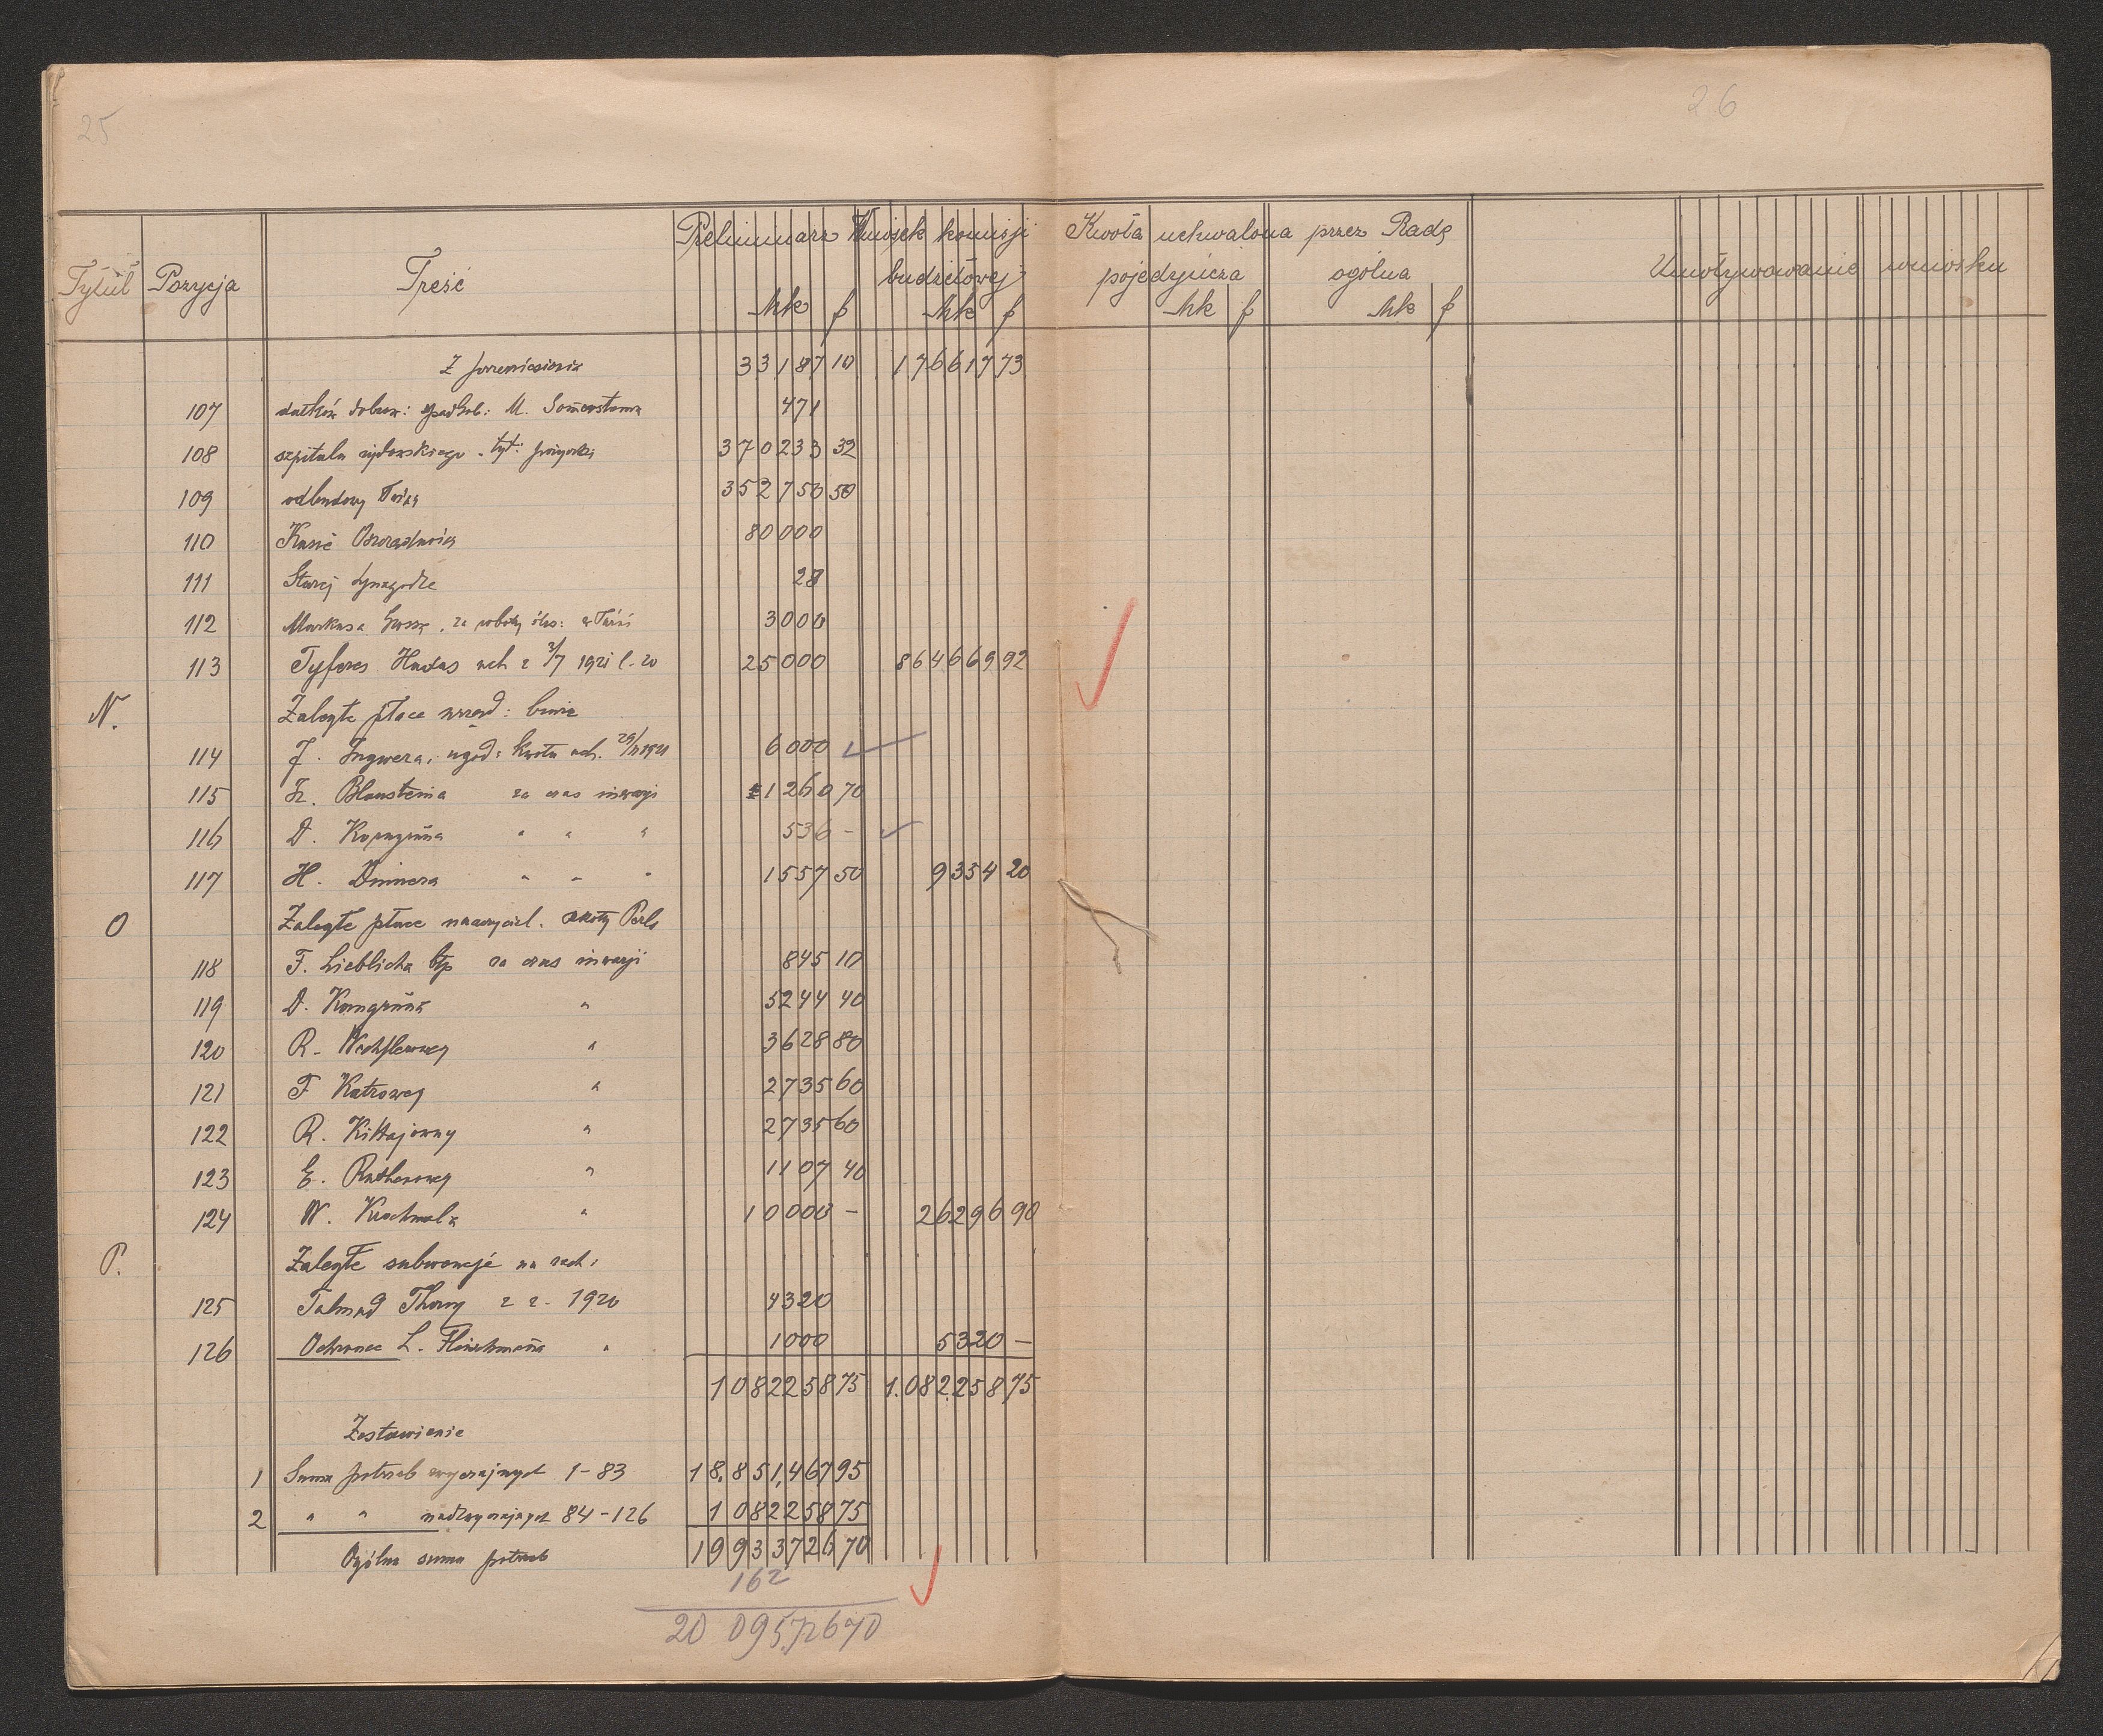 25
26
Tytuł Pozycja Treść Preliminarz Wniosek komisji budżetowej Kwota uchwalona przez Radę Umotywowanie wniosku
pojedyńcza ogólna
Mk f Mk f Mk f Mk f
Z przeniesienia 33187 10 176617 73
107 datków dobrow: spadkob: M. 471
108 szpitala żydowskiego tyt: pożyczki 370233 32
109 odbudowy Łaźni 352750 50
110 Kasie 80000
111 Starej Synagodze 28
112 Markusa za roboty ślus: w Łaźni 3000
113 Tyferes Hadas uch z 3/7 1921 l. 20 25000 864669 92
N. Zaległe płace urzęd: biura
114 J. Ingwera, ugod: kwota uch. 29/11 1921 6000
115 Iz. Blausteina za czas inwazji 1260 70
116 D. Korngrüna " " " 536 -
117 H. Dimmera " " " 1557 50 9354 20
O Zaległe płace nauczyciel. szkoły Perla
118 F. Lieblicha za czas inwazji 845 10
119 D. Korngrüna " 5244 40
120 R. Wechslerowej " 3628 80
121 F Katzowej " 2735 60
122 R. Kittajówny " 2735 60
123 E. Ratherowej " 1107 40
124 W. Krochmala " 10000 - 26296 90
P. Zaległe subwencje na rach:
125 Talmud Thory z r. 1920 4320
126 Ochronce L. Fleischmana " 1000 5320 -
1082258 75 1.082.258 75
Zestawienie
1 Suma potrzeb zwyczajnych 1-83 18.851,467 95
2 " " nadzwyczajnych 84-126 1 082258 75
Ogólna suma potrzeb 19933726 70
162
20 095.726 70